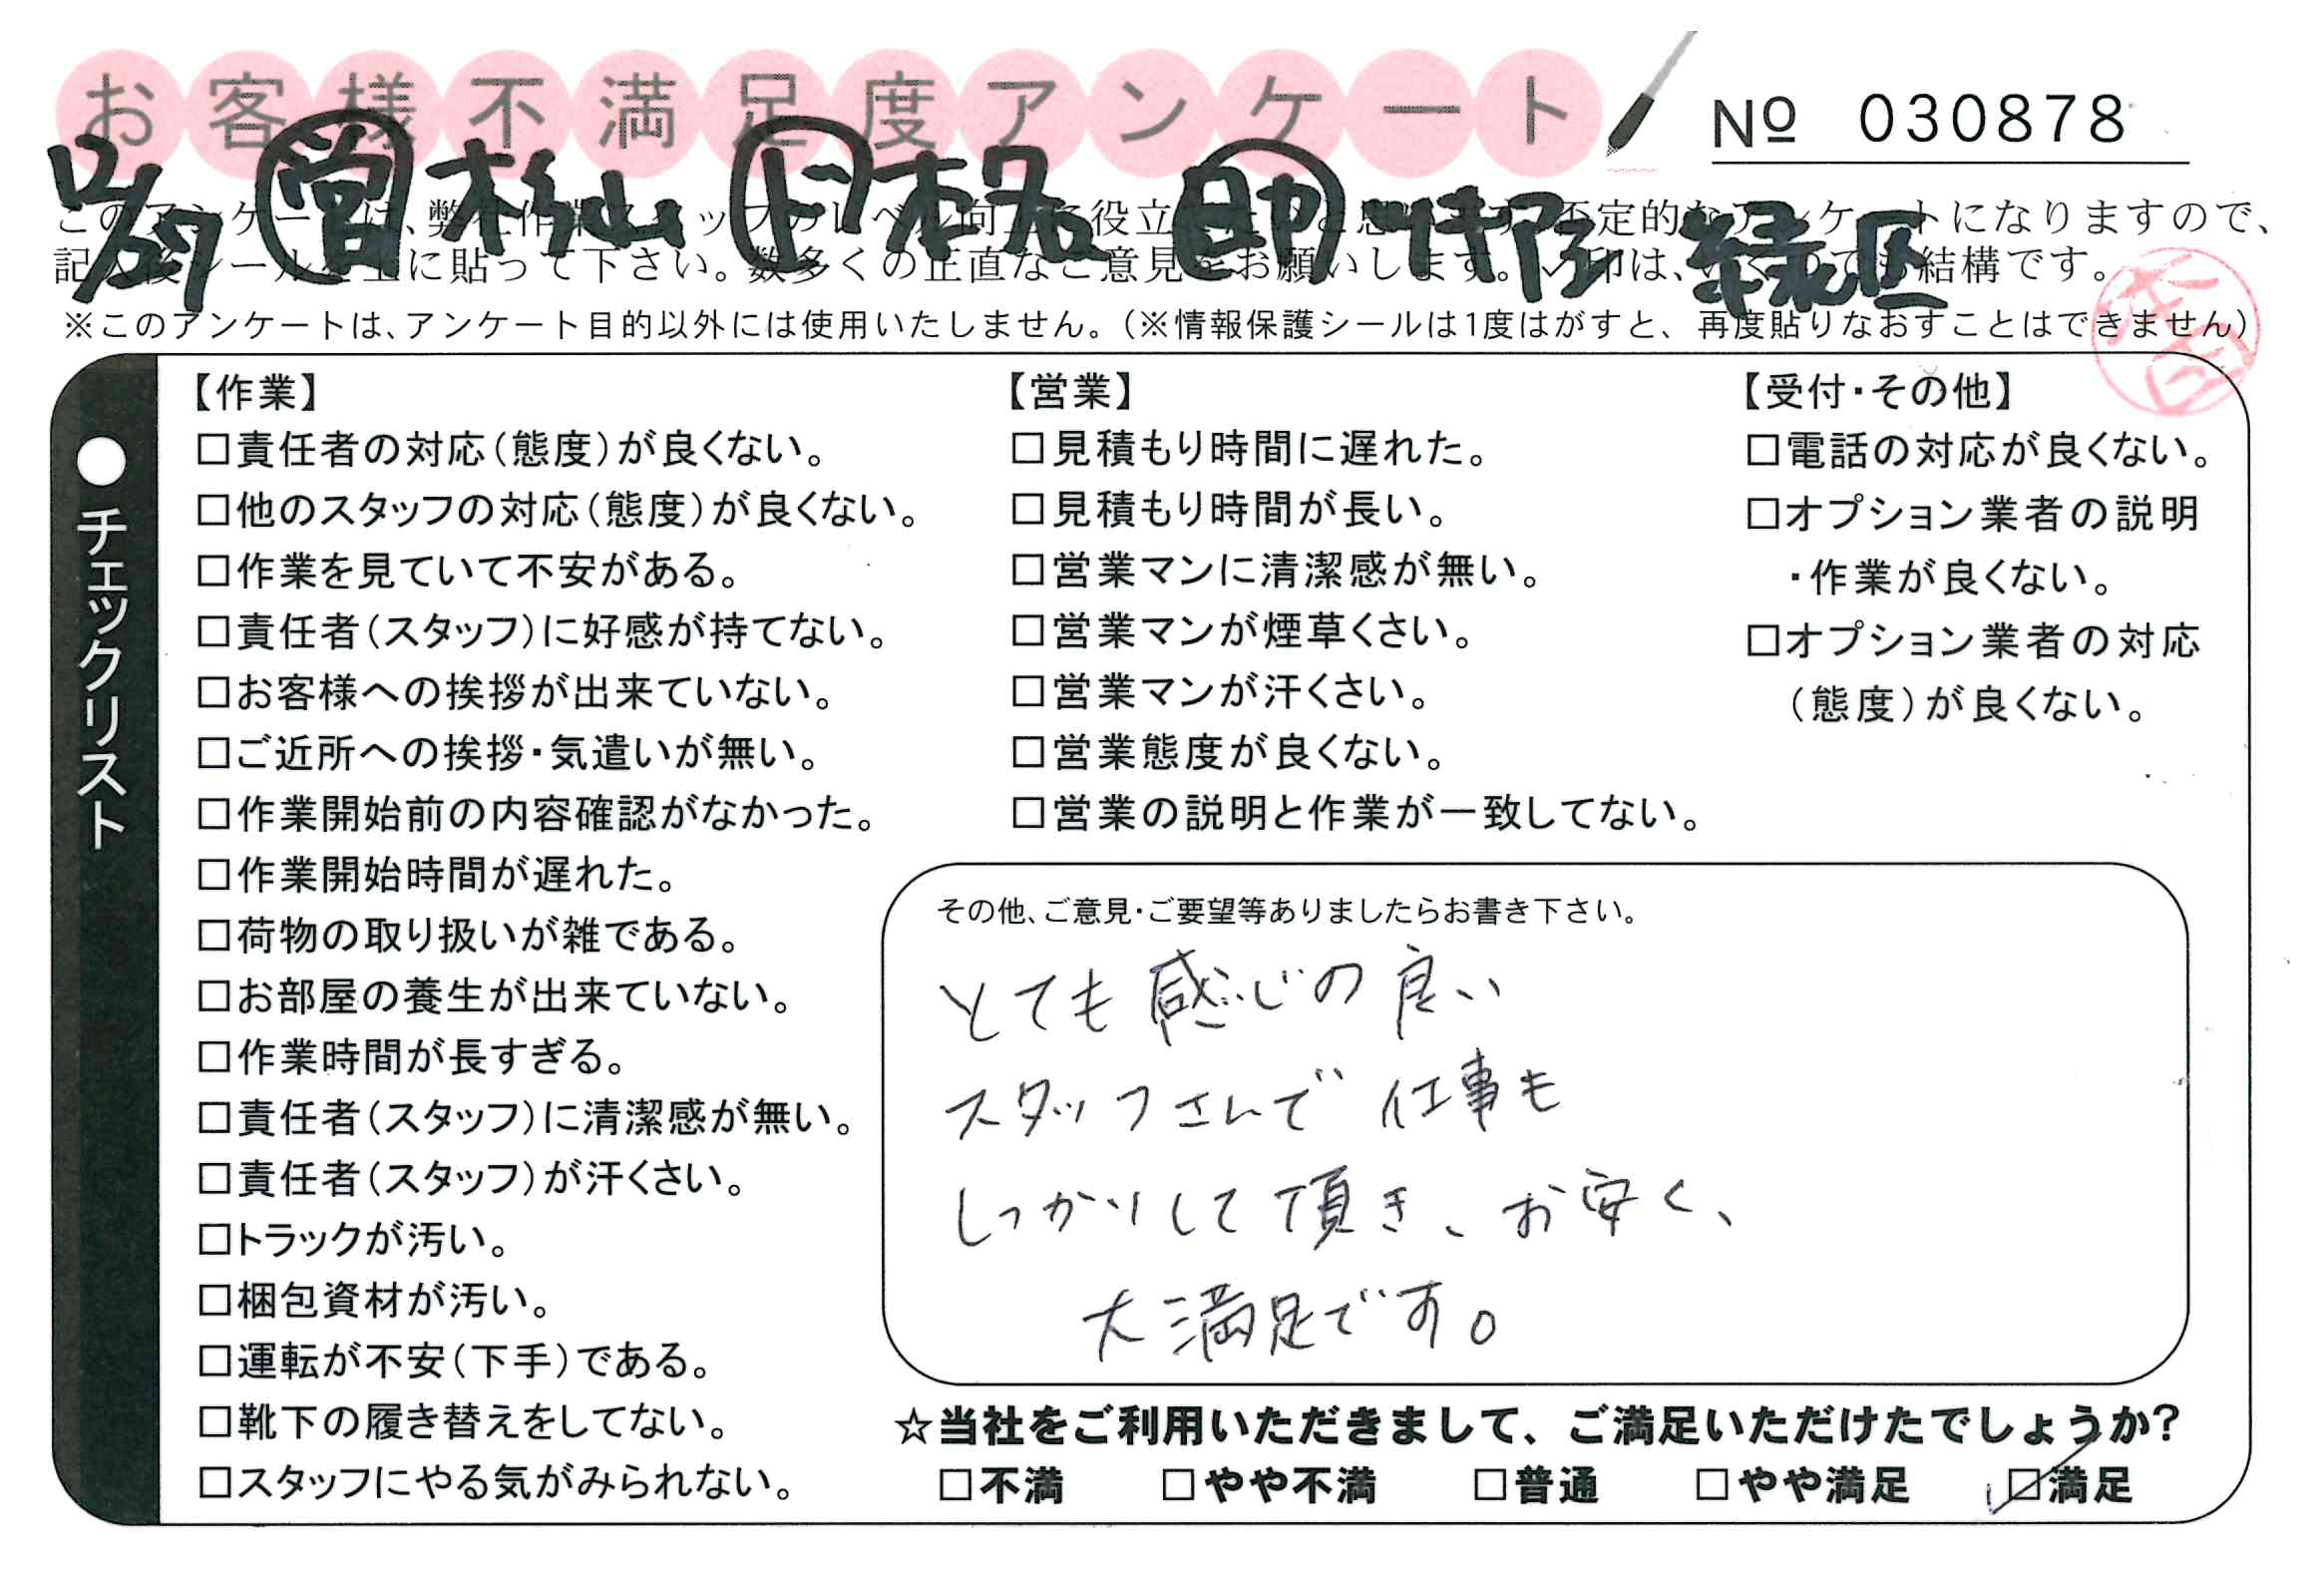 お客様不満足度アンケート
№ 030878
12/27 営 杉山 緑区
※このアンケートは、アンケート目的以外には使用いたしません。（※情報保護シールは1度はがすと、再度貼りなおすことはできません）
●チェックリスト
【作業】
□責任者の対応（態度）が良くない。
□他のスタッフの対応（態度）が良くない。
□作業を見ていて不安がある。
□責任者（スタッフ）に好感が持てない。
□お客様への挨拶が出来ていない。
□ご近所への挨拶・気遣いが無い。
□作業開始前の内容確認がなかった。
□作業開始時間が遅れた。
□荷物の取り扱いが雑である。
□お部屋の養生が出来ていない。
□作業時間が長すぎる。
□責任者（スタッフ）に清潔感が無い。
□責任者（スタッフ）が汗くさい。
□トラックが汚い。
□梱包資材が汚い。
□運転が不安（下手）である。
□靴下の履き替えをしてない。
□スタッフにやる気がみられない。
【営業】
□見積もり時間に遅れた。
□見積もり時間が長い。
□営業マンに清潔感が無い。
□営業マンが煙草くさい。
□営業マンが汗くさい。
□営業態度が良くない。
□営業の説明と作業が一致してない。
【受付・その他】
□電話の対応が良くない。
□オプション業者の説明
・作業が良くない。
□オプション業者の対応
（態度）が良くない。
その他、ご意見・ご要望等ありましたらお書き下さい。
とても感じの良い
スタッフさんで仕事も
しっかりして頂き、お安く、
大満足です。
☆当社をご利用いただきまして、ご満足いただけたでしょうか？
□不満 □やや不満 □普通 □やや満足 ☑満足